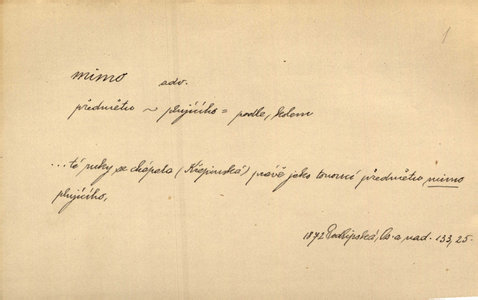 1
mimo adv.
předmětu ~ plujícího = podle, kolem
...té ruky se chápala (Křepinská) právě jako tonoucí předmětu mimo
plujícího,
1872 Podlipská, Os. a nad. 133, 25.